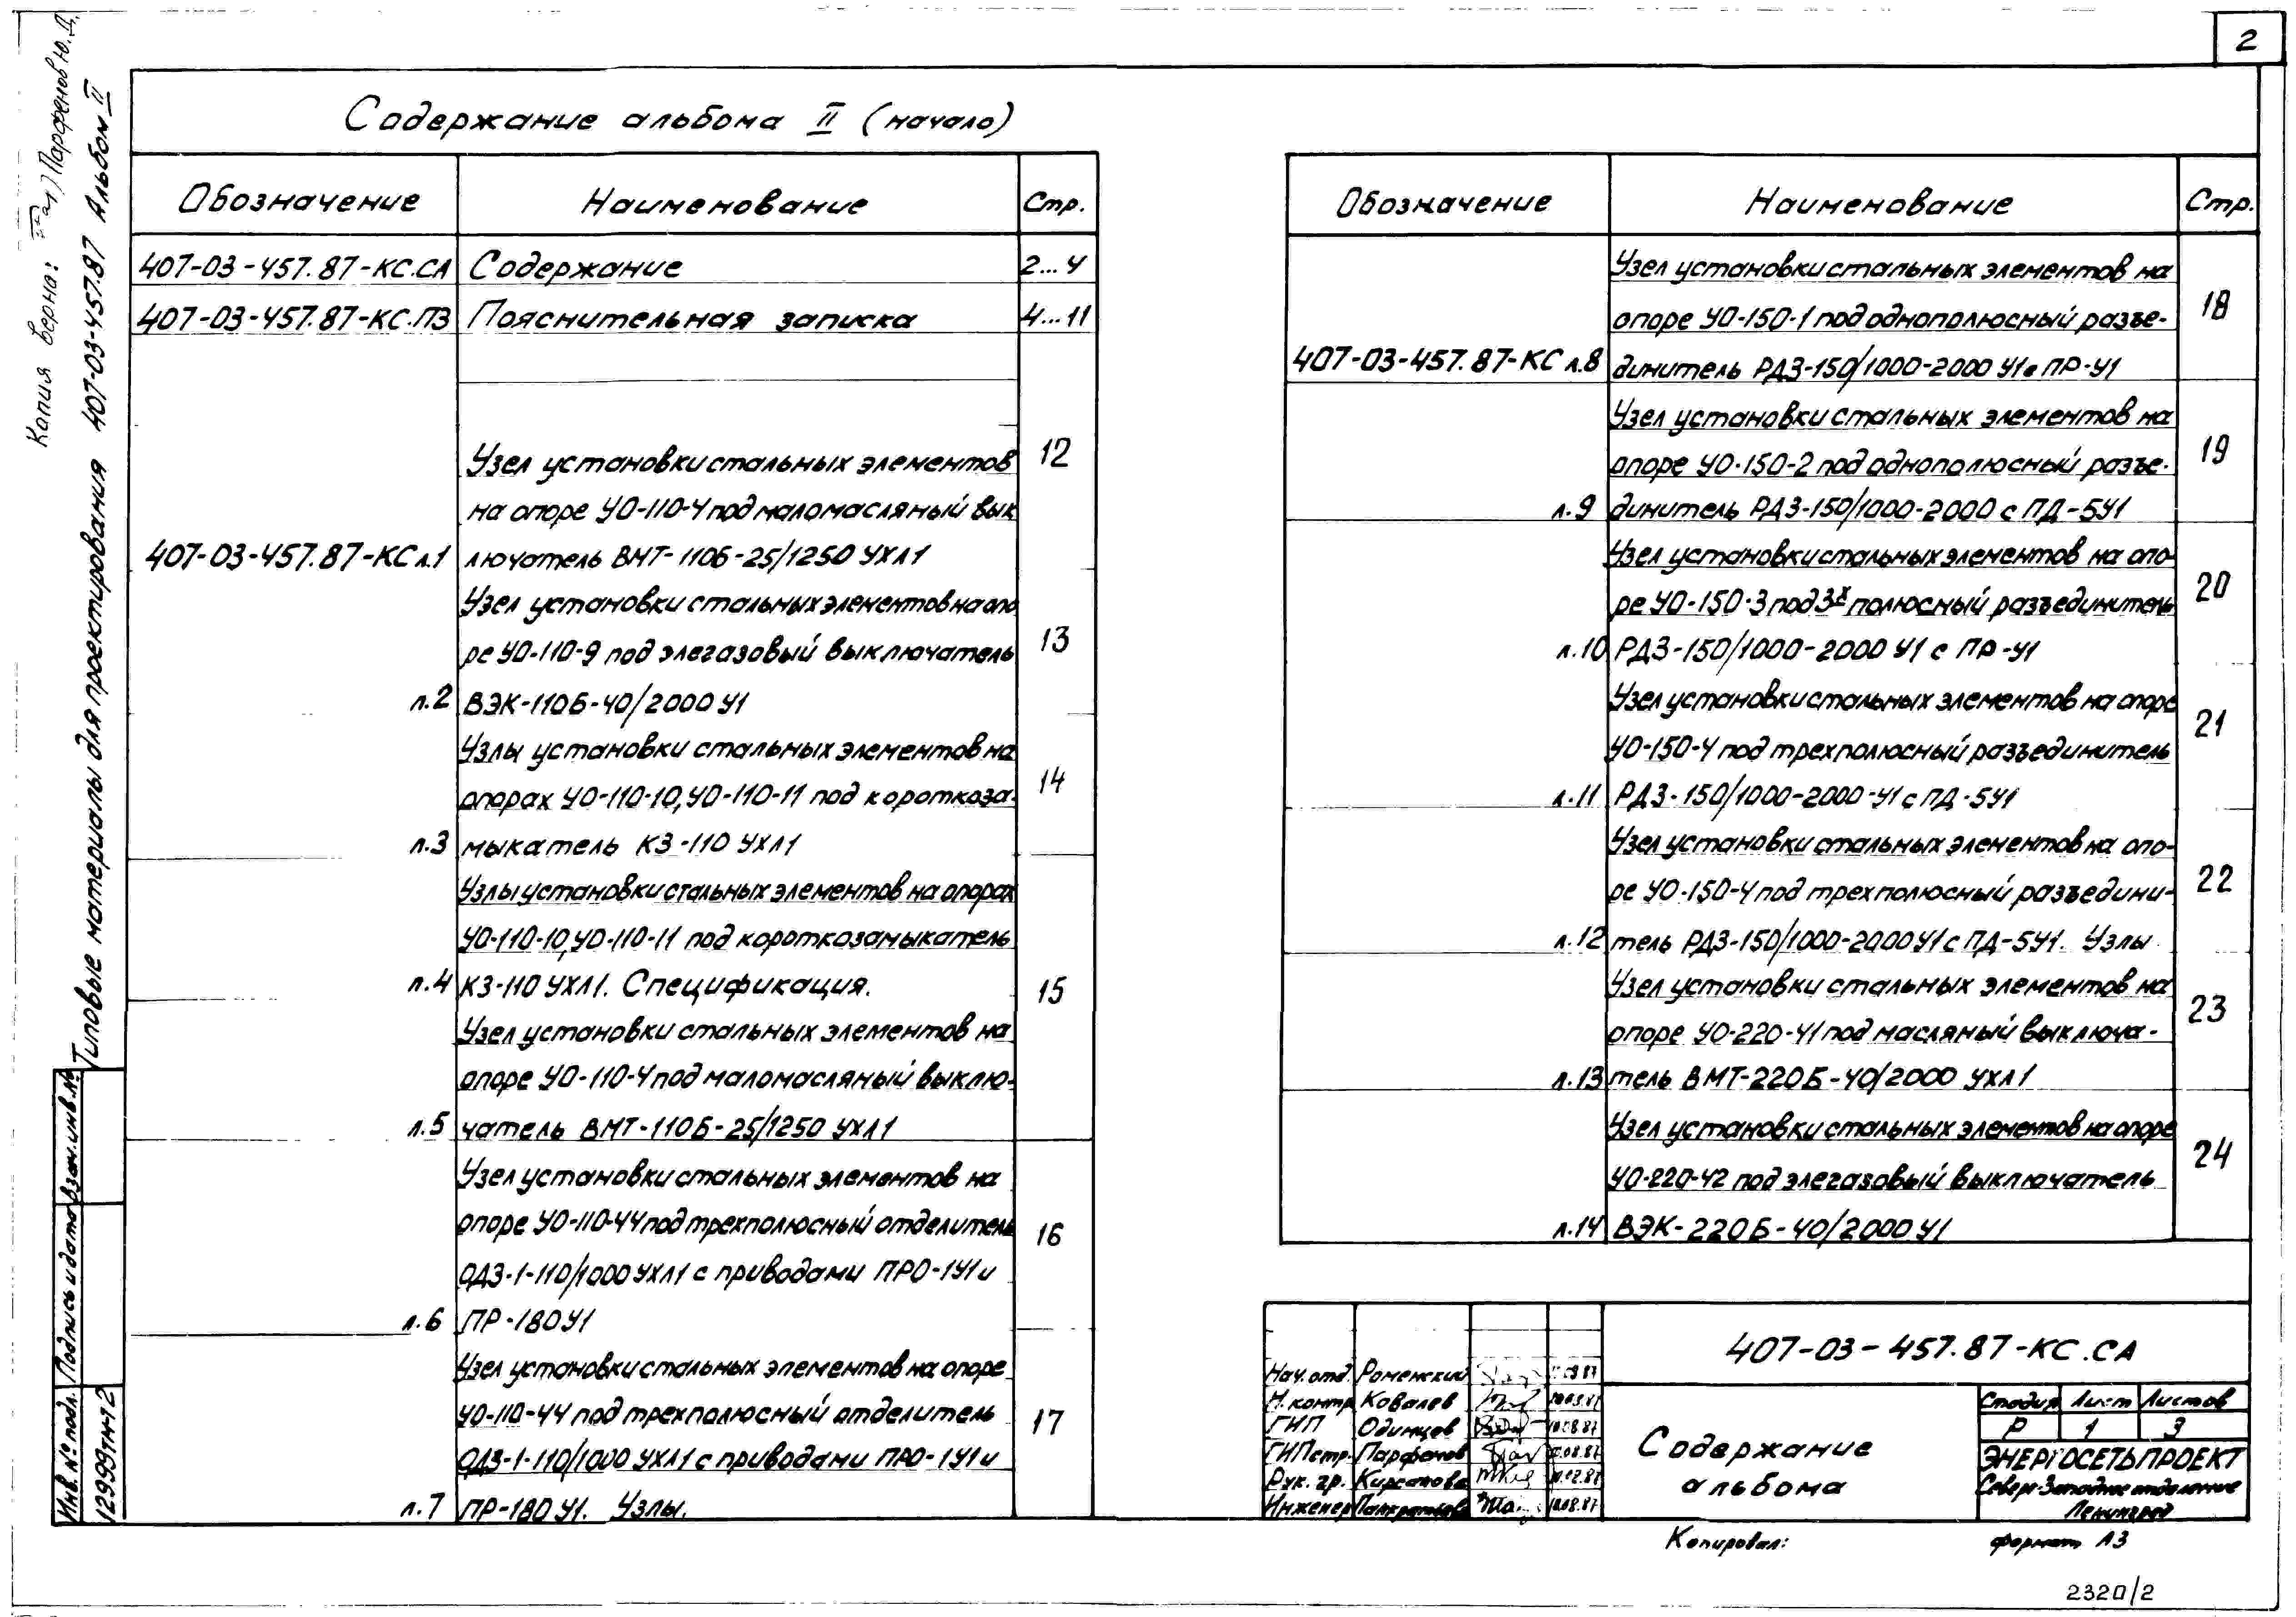 2
Содержание альбома II (начало)
Обозначение Наименование Стр.
407-03-457.87-КС.СА Содержание 2...4
407-03-457.87-КС.ПЗ Пояснительная записка 4...11
Узел установки стальных элементов 12
на опоре УО-110-4 под маломасляный вык
407-03-457.87-КС л.1 лючатель ВМТ-110Б-25/1250 УХЛ1
Узел установки стальных элементов на опо
ре УО-110-9 под элегазовый выключатель 13
л.2 ВЭК-110Б-40/2000 У1
Узлы установки стальных элементов на
опорах УО-110-10, УО-110-11 под короткоза- 14
л.3 мыкатель КЗ-110 УХЛ1
Узлы установки стальных элементов на опорах
УО-110-10, УО-110-11 под короткозамыкатель
л.4 КЗ-110 УХЛ1. Спецификация. 15
Узел установки стальных элементов на
опоре УО-110-4 под маломасляный выклю-
л.5 чатель ВМТ-110Б-25/1250 УХЛ1
Узел установки стальных элементов на
опоре УО-110-44 под трехполюсный отделитель 16
ОДЗ-1-110/1000 УХЛ1 с приводами ПРО-1У1 и
л.6 ПР-180У1
Узел установки стальных элементов на опоре
УО-110-44 под трехполюсный отделитель 17
ОДЗ-1-110/1000 УХЛ1 с приводами ПРО-1У1 и
л.7 ПР-180 У1. Узлы.
Обозначение Наименование Стр.
Узел установки стальных элементов на
опоре УО-150-1 под однополюсный разъе- 18
407-03-457.87-КС л.8 динитель РДЗ-150/1000-2000 У1 с ПР-У1
Узел установки стальных элементов на
опоре УО-150-2 под однополюсный разъе- 19
л.9 динитель РДЗ-150/1000-2000 с ПД-5У1
Узел установки стальных элементов на опо-
ре УО-150-3 под 3х полюсный разъединитель 20
л.10 РДЗ-150/1000-2000 У1 с ПР-У1
Узел установки стальных элементов на опоре
УО-150-4 под трехполюсный разъединитель 21
л.11 РДЗ-150/1000-2000-У1 с ПД-5У1
Узел установки стальных элементов на опо-
ре УО-150-4 под трехполюсный разъедини- 22
л.12 тель РДЗ-150/1000-2000У1 с ПД-5У1. Узлы
Узел установки стальных элементов на
опоре УО-220-41 под масляный выключа- 23
л.13 тель ВМТ-220Б-40/2000 УХЛ1
Узел установки стальных элементов на опоре
УО-220-42 под элегазовый выключатель 24
л.14 ВЭК-220Б-40/2000 У1
407-03-457.87-КС.СА
Нач. отд. Роменский
Н. контр Ковалев
ГИП Одинцов 10.08.87
ГИПстр. Парфенов
Рук. гр. Кирсанова
Инженер Панкратьева 10.08.87
Содержание
альбома
Стадия Лист Листов
Р 1 3
ЭНЕРГОСЕТЬПРОЕКТ
Северо-Западное отделение
Ленинград
Копировал: формат А3
2320/2
Копия верна: Парфенов Ю.Д.
Типовые материалы для проектирования 407-03-457.87 Альбом II
Инв. № подл. Подпись и дата Взам. инв. №
12999тм-т2